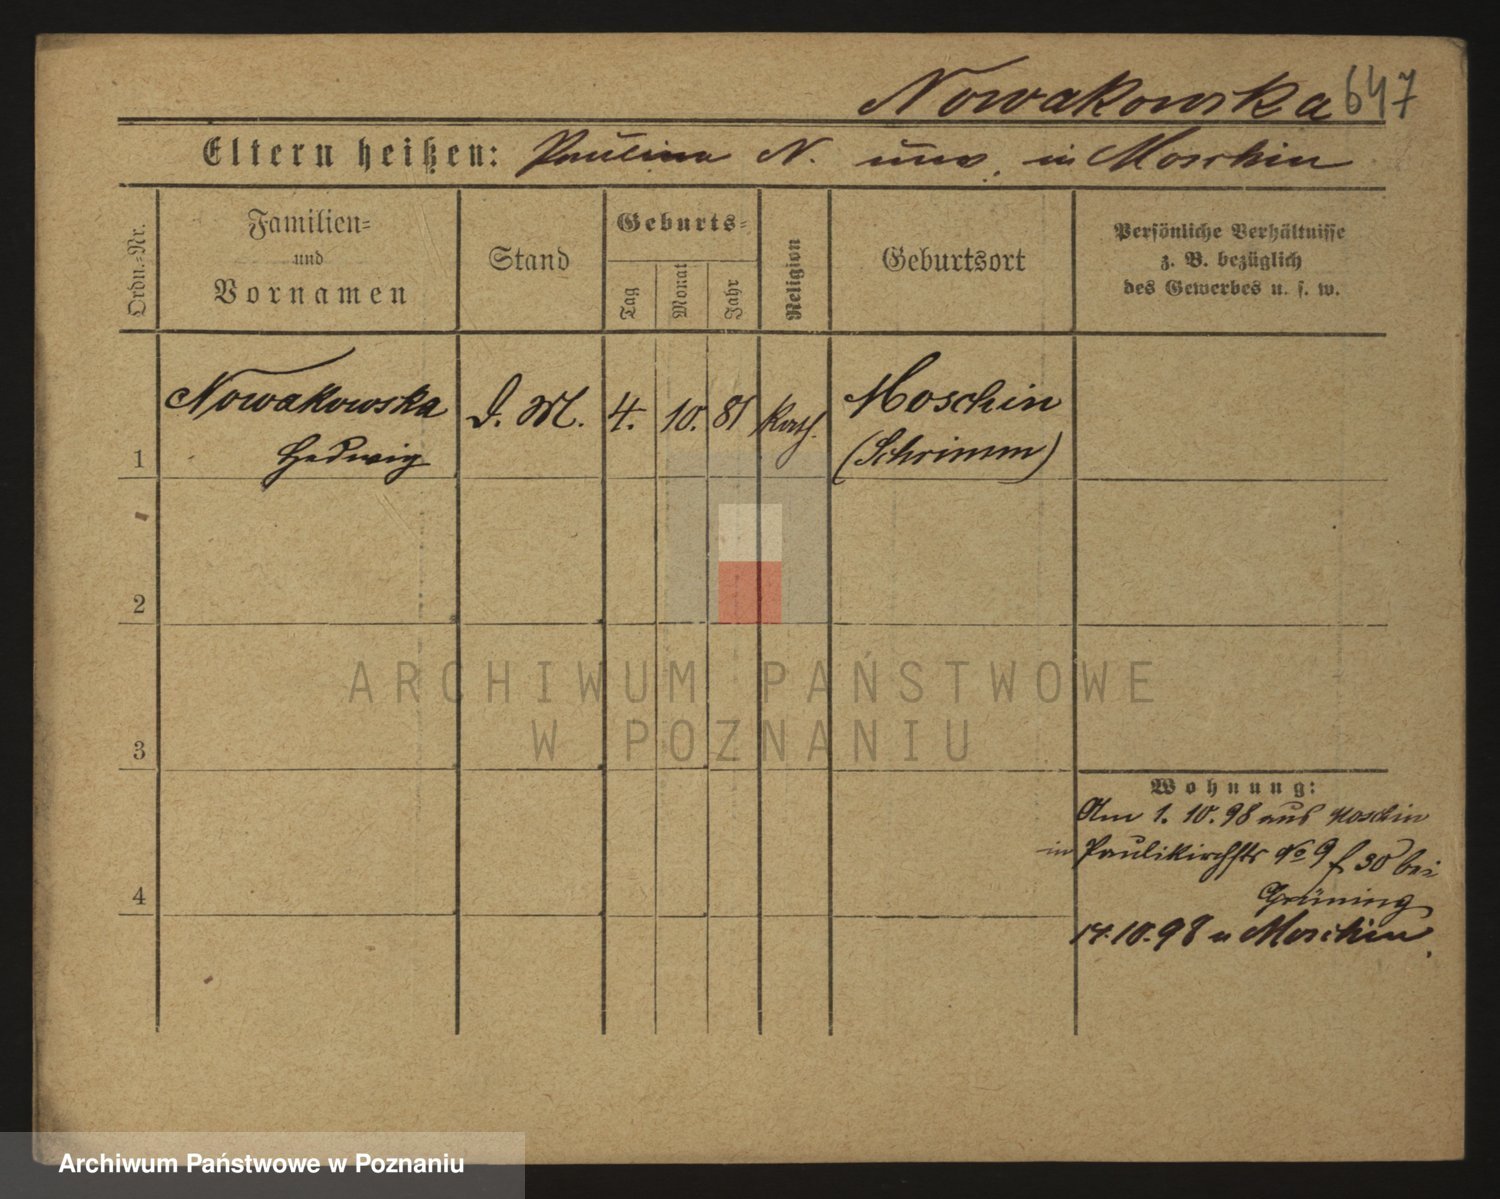 Nowakowska 647
Eltern heißen: Paulina N. unv. in Moschin
Ordn.-Nr.
Familien-
und
Vornamen
Stand
Geburts-
Tag
Monat
Jahr
Religion
Geburtsort
Persönliche Verhältnisse
z. B. bezüglich
des Gewerbes u. s. w.
1
Nowakowska
Hedwig
D. M.
4.
10.
81
Kath.
Moschin
(Schrimm)
2
3
4
Wohnung:
Am 1. 10. 98 aus Moschin
in Paulikirchstr No 9 f 30 bei
Grüning
14.10.98 n Moschin.
ARCHIWUM PAŃSTWOWE
W POZNANIU
Archiwum Państwowe w Poznaniu